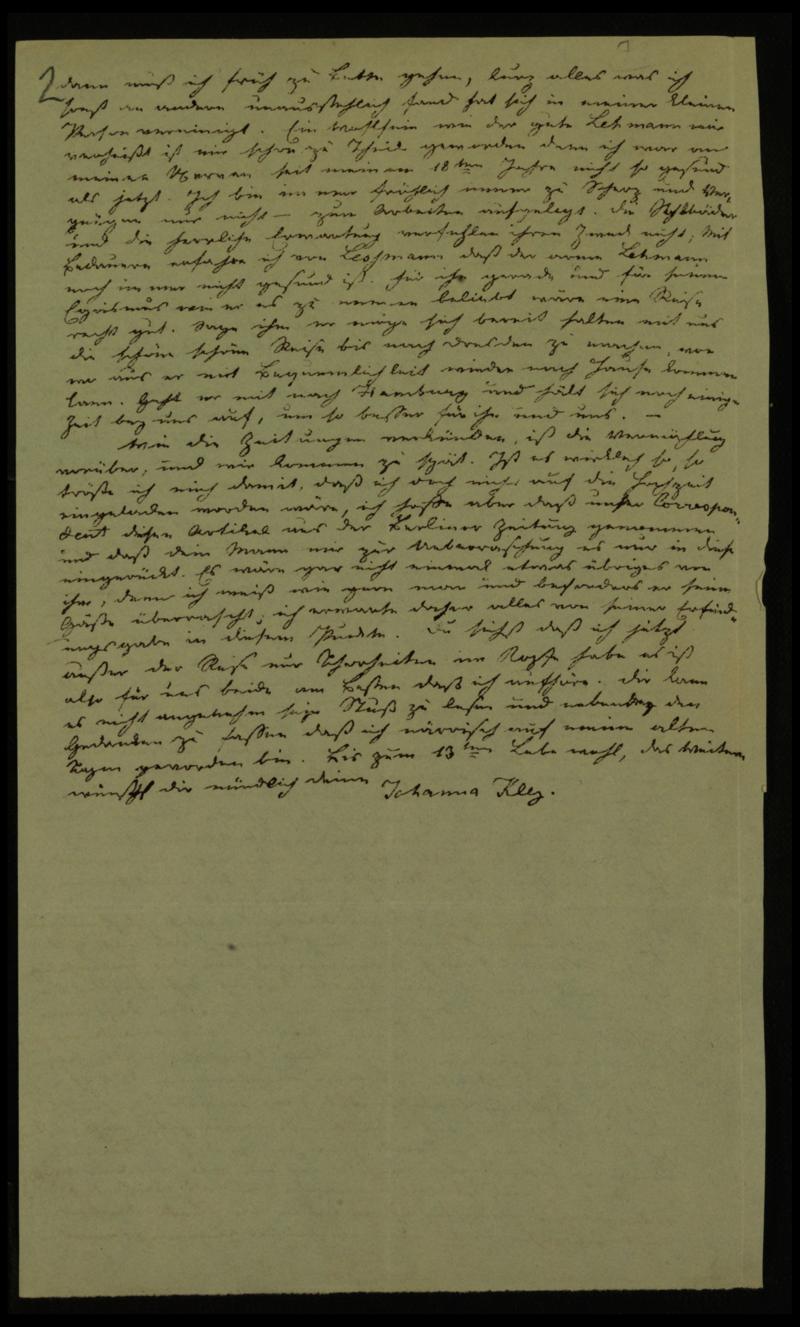 2 dann muß ich früh zu Bette gehen, kurz alles was ich
sonst an andern unausstehlich fand hat sich in meiner kleinen
Person vereinigt. Ein Wohlsein wie der gute Lehmann mir
verheißt ist mir schon zu Theil geworden denn ich war an
meinen Nerven seit meinem 18ten Jahre nicht so gesund
als jetzt. Ich bin immer fröhlich immer zu Scherz und Ver-
gnügen nur nicht — zum Arbeiten aufgelegt. Die
und die herrliche Erwartung verfehlen ihren Zweck nicht; Mit
Bedauern erfahre ich von daß der arme Lehmann
noch immer nicht gesund ist. Für ihn gerade und für seinen
Egoismus wie er es zu nennen beliebt wäre eine Reise
recht gut. Sage ihm er möge sich bereit halten mit uns
die schöne schöne Reise bis nach Dresden zu machen, von
wo aus er mit Bequemlichkeit wieder nach Hause kommen
kann. Geht er mit nach Hamburg und hält sich noch einige
Zeit bey uns auf, um so besser für ihn und uns. —
Wie die Zeitungen verkünden, ist die Vermählung
vorüber, und wir kommen zu spät. Ist es wirklich so, so
tröste ich mich damit, daß ich doch nicht auf die Hochzeit
eingeladen worden wäre, ich hoffe aber daß unser Correspon-
dent diesen Artikel aus der Berliner Zeitung genommen
und daß dein Mann mir zur Ueberraschung es nur in diese
eingerückt. Es wäre gar nicht einmal etwas übriges von
ihm, denn ich weiß wie gern man und besonders er seine
Gäste überrascht; ich erwarte daher alles von seiner Erfind-
ungsgabe in diesem Punkte. Du siehst daß ich jetzt
außer der Reise nur Thorheiten im Kopfe habe es ist
also für uns beide am Besten daß ich aufhöre. Dir kann
es nicht angenehm sein Stuß zu lesen und nebenbey den
Gedanken zu fassen daß ich närrisch auf meine alten
Tage geworden bin. Bis zum 13ten Lebe wohl, das Weitere
wünscht dir mündlich deine Johanna Kley.